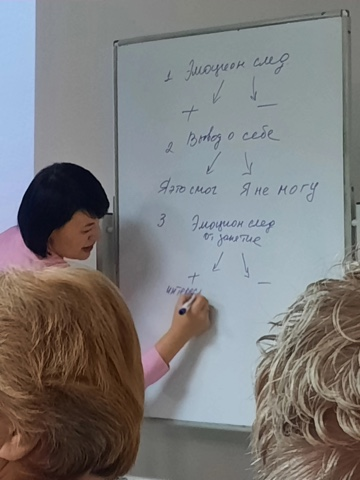 1 Эмоцион след
+ —
2 Вывод о себе
Я это смог Я не могу
3 Эмоцион след
от занятие
+ —
интерес